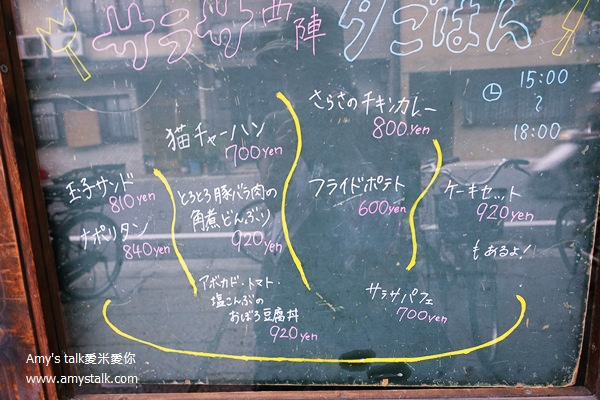 サラサ西陣 夕ごはん
15:00
~
18:00
玉子サンド
810yen
ナポリタン
840yen
猫チャーハン
700yen
とろとろ豚バラ肉の
角煮どんぶり
920yen
アボカド・トマト・
塩こんぶの
おぼろ豆腐丼
920yen
さらさのチキンカレー
800yen
フライドポテト
600yen
サラサパフェ
700yen
ケーキセット
920yen
もあるよ!
Amy's talk愛米愛你
www.amystalk.com